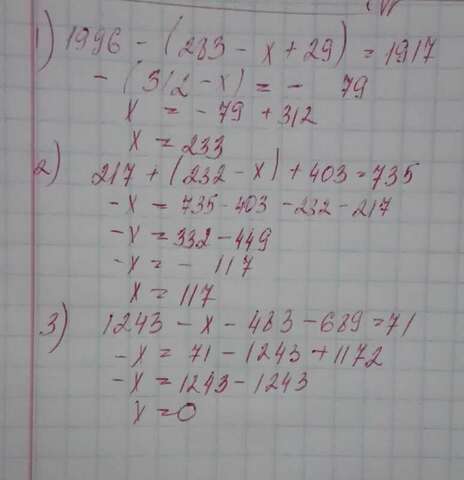 1) 1996 - (283 - x + 29) = 1917
- (312 - x) = - 79
x = - 79 + 312
x = 233
2) 217 + (232 - x) + 403 = 735
-x = 735 - 403 - 232 - 217
-x = 332 - 449
-x = - 117
x = 117
3) 1243 - x - 483 - 689 = 71
-x = 71 - 1243 + 1172
-x = 1243 - 1243
x = 0